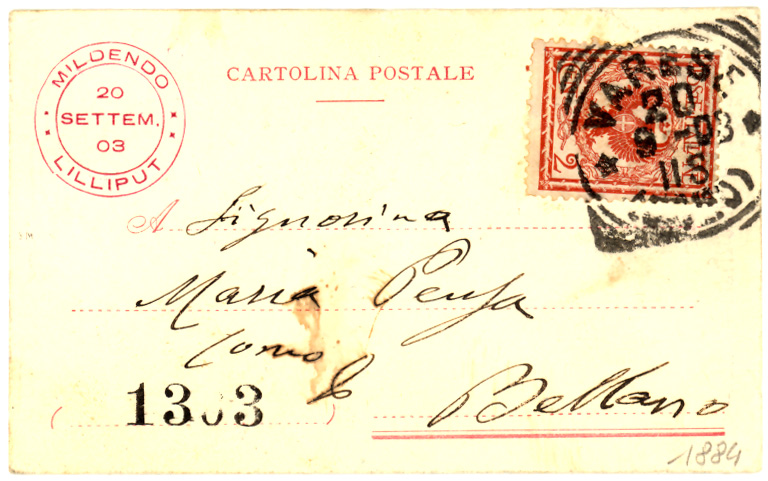 MILDENDO
20
SETTEM.
03
LILLIPUT
CARTOLINA POSTALE
VARESE
2
A Signorina
Maria Pensa
Como
Bellano
1303
1884